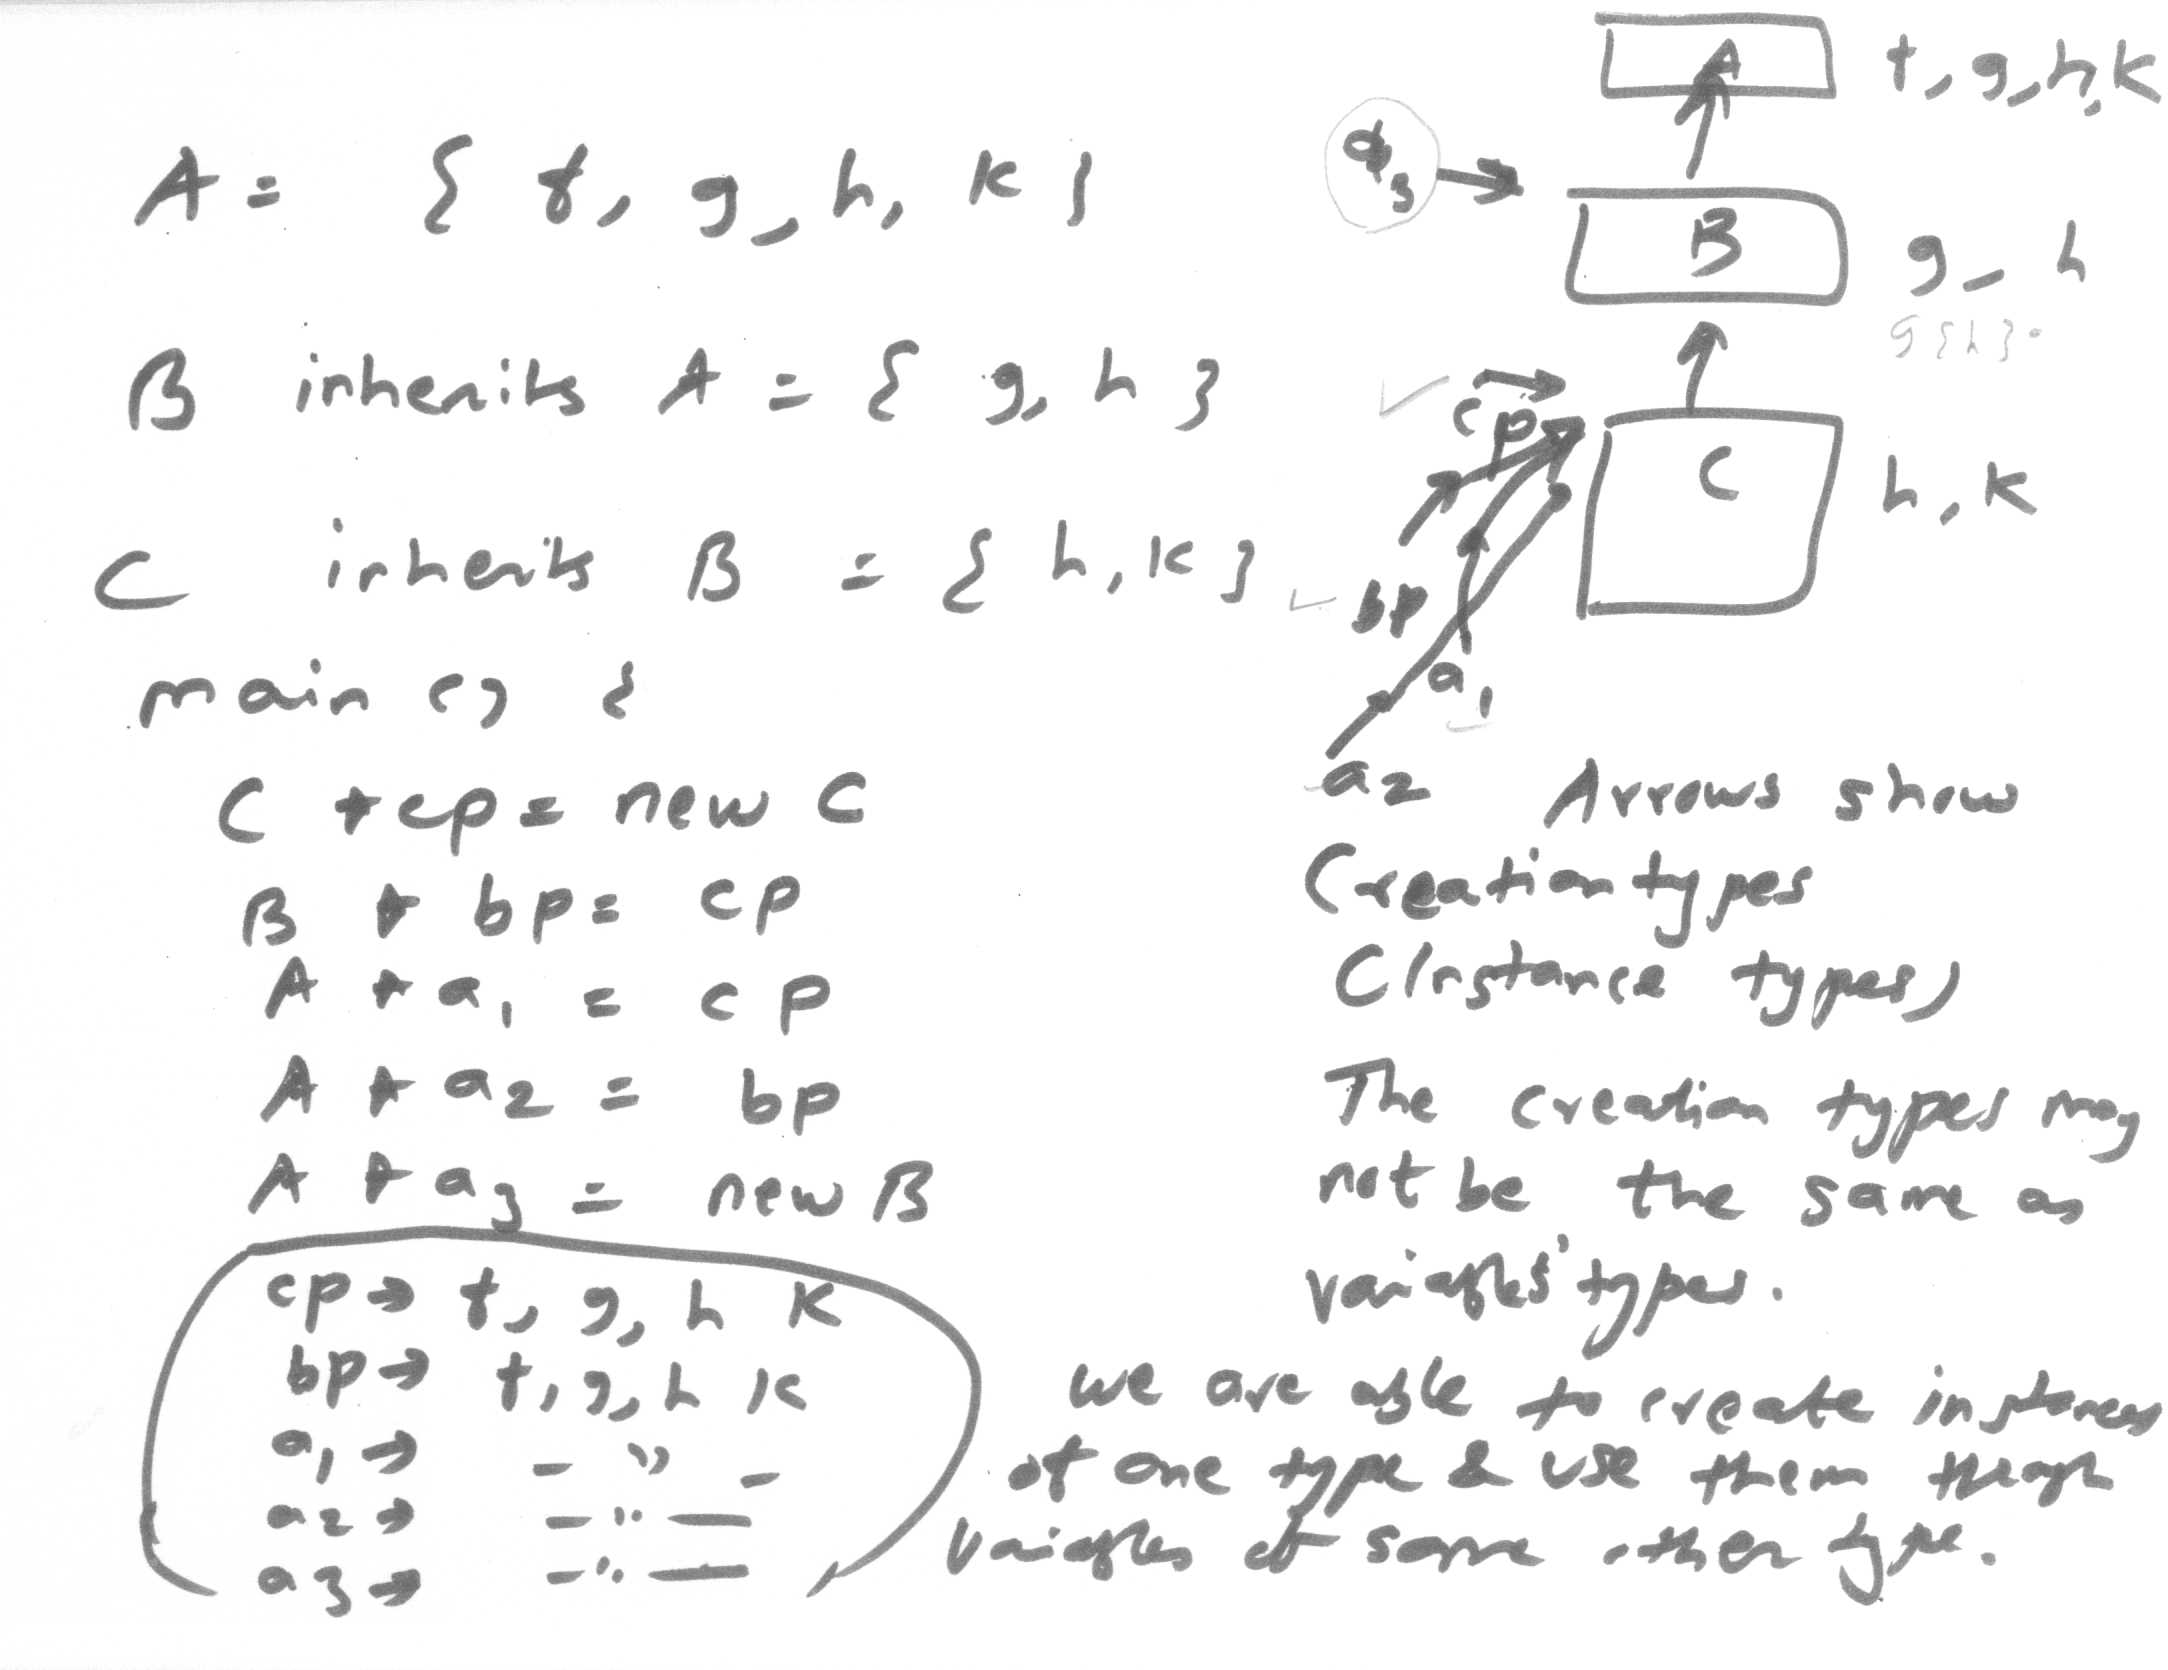 A
t, g, h, k
a3 →
A = { f, g, h, k }
B
g, h
g { h }
B inherits A = { g, h }
cp
C
h, k
C inherits B = { h, k }
bp
a1
main () {
a2 Arrows show
C *cp = new C
Creation types
B * bp = cp
(Instance types)
A * a1 = cp
A * a2 = bp
The creation types may
A * a3 = new B
not be the same as
variables' types.
cp → f, g, h k
bp → f, g, h k
a1 → - " -
a2 → - " -
a3 → - " -
we are able to create instances
of one type & use them through
variables of some other type.